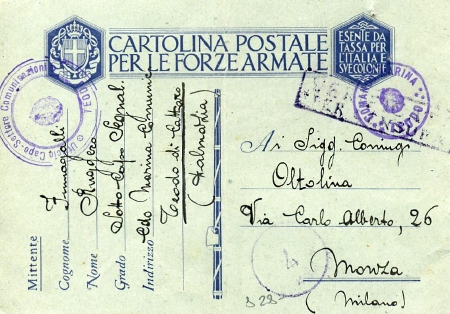 CARTOLINA POSTALE
PER LE FORZE ARMATE
ESENTE DA
TASSA PER
L'ITALIA E
SVE COLONIE
Mittente
Cognome Fumagalli
Nome Ruggero
Grado Sotto Capo Segnal.
Indirizzo Cdo Marina
Teodo di Cattaro
(Dalmatia)
Ai Sigg. Coniugi
Oltolina
Via Carlo Alberto, 26
Monza
(Milano)